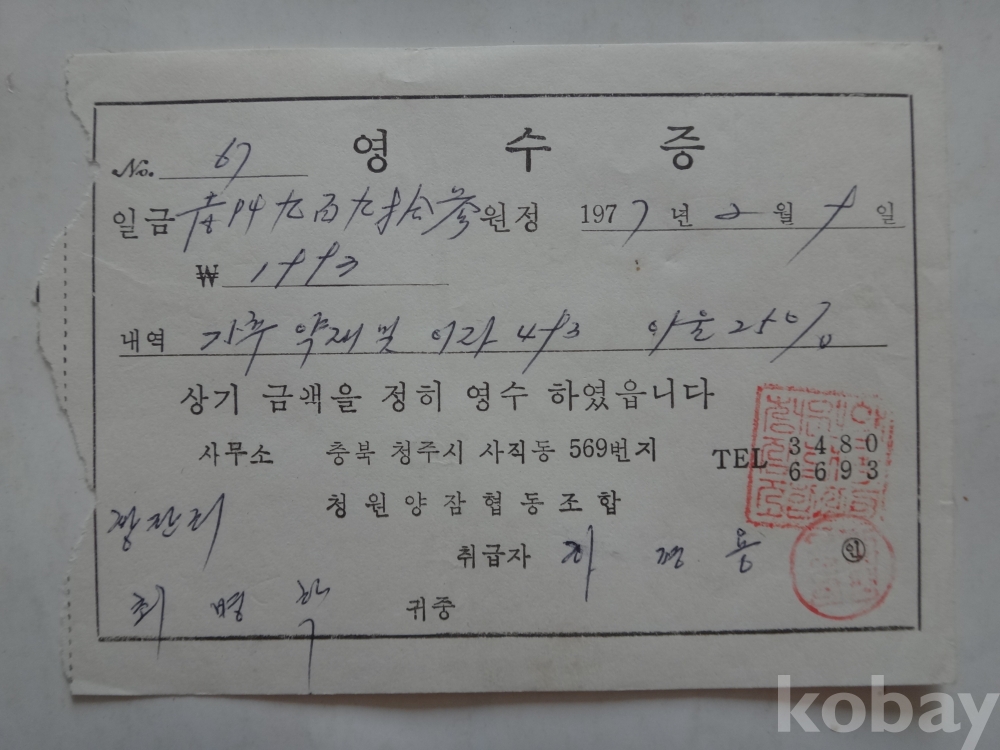 영 수 증
No. 67
일금 壹阡九百九拾参 원정 1977년 2월 9일
₩ 1993
내역 가축 약재 및
상기 금액을 정히 영수 하였읍니다
사무소 충북 청주시 사직동 569번지 TEL 3480
6693
청원양잠협동조합
취급자 용 ㊞
최병학 귀중
kobay